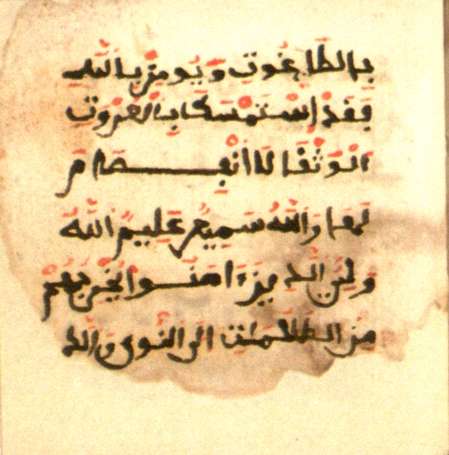 بالطاغوت ويومن بالله
فقد استمسك بالعروت
الوثقا لا انفصام
لها والله سميع عليم الله
ولي الذين ءامنوا يخرجهم
من الظلمت الى النور والذ